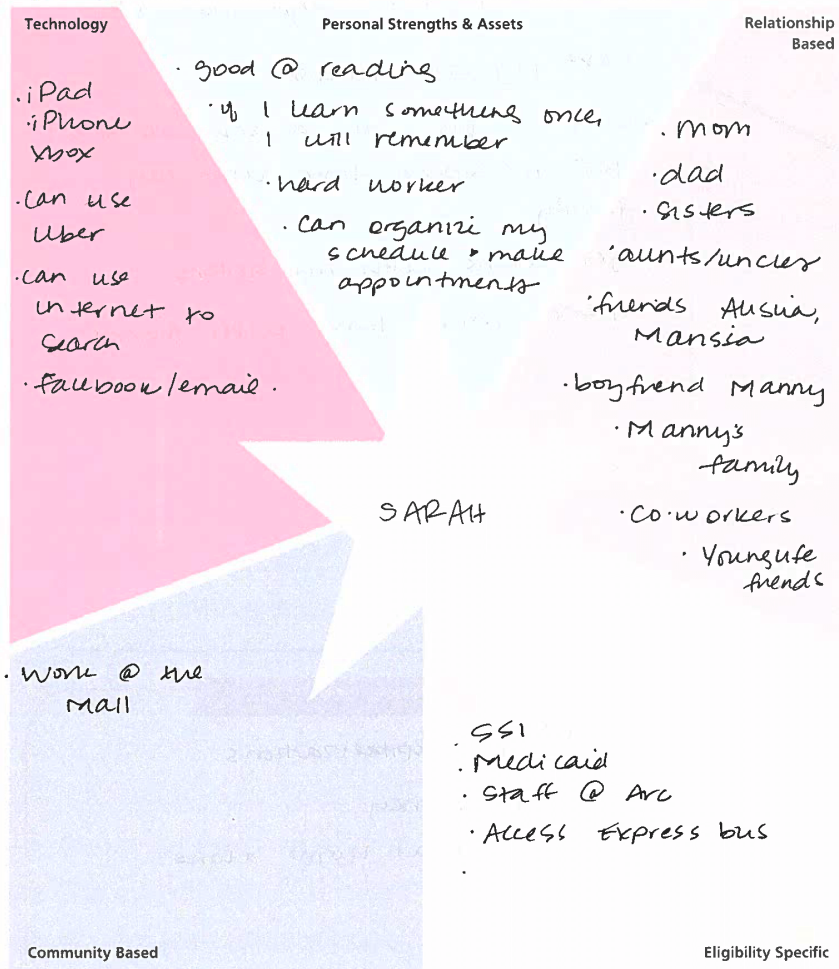 Technology
Personal Strengths & Assets
Relationship
Based
· iPad
· iPhone
Xbox
· Can use
Uber
· can use
internet to
search
· facebook/email.
· good @ reading
· if I learn something once,
I will remember
· hard worker
· Can organize my
schedule + make
appointments
· mom
· dad
· sisters
· aunts/uncles
· friends
Marisia
· boyfriend Manny
· Manny's
family
· co-workers
· Younglife
friends
SARAH
· Work @ the
Mall
· SSI
· Medicaid
· Staff @ Arc
· Access Express bus
·
Community Based
Eligibility Specific